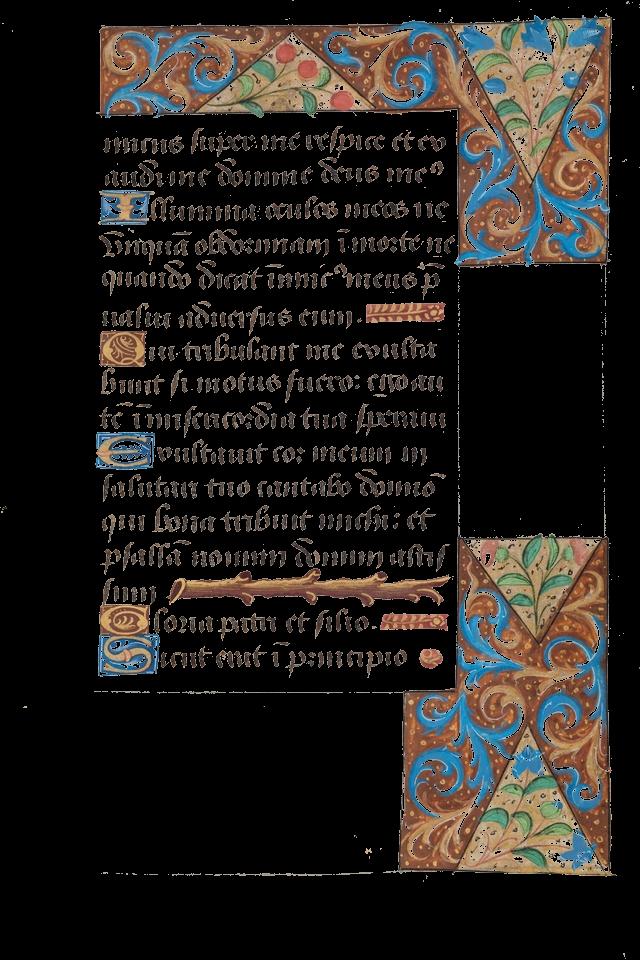 micus super me respice et ex
audi me domine deus me⁹
Illumina oculos meos ne
vnquã obdormiam ĩ morte ne
quando dicat inimic⁹ meus p̃
ualui aduersus eum.
Qui tribulant me exulta
bunt si motus fuero: ego au
tẽ ĩ misericordia tua speraui
Exultauit cor meum in
salutari tuo cantabo domiõ
qui bona tribuit michi: et
psallã nomini domini altis
simi
Gloria patri et filio.
Sicut erat ĩ principio